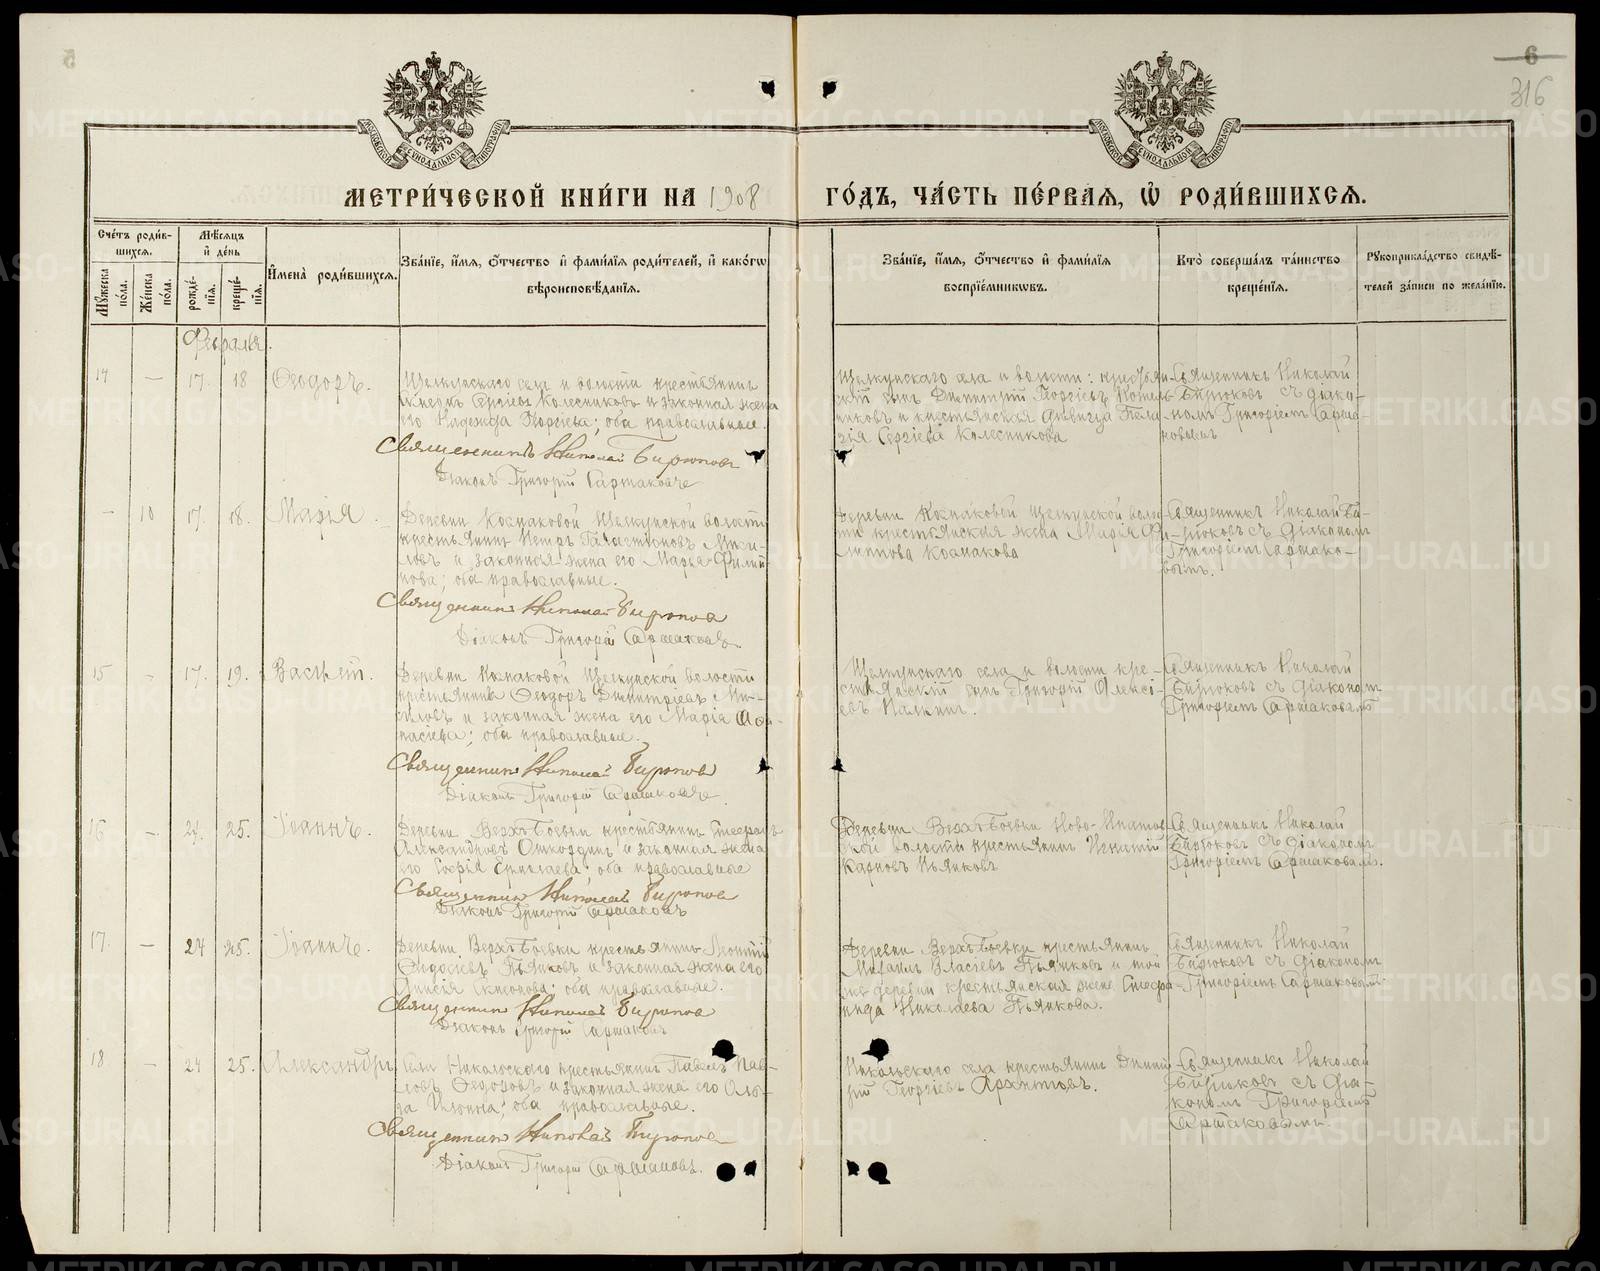 5
6
316
МОСКОВСКОЙ СУНОДАЛЬНОЙ ТИПОГРАФІИ
МОСКОВСКОЙ СУНОДАЛЬНОЙ ТИПОГРАФІИ
МЕТРИ́ЧЕСКОЙ КНИ́ГИ НА 1908
ГО́ДЪ, ЧА́СТЬ ПЕ́РВАѦ, Ѡ҆ РОДИ́ВШИХСѦ.
Сче́тъ роди́в-
шихсѧ.
Мꙋ́жеска по́ла.
Же́нска по́ла.
Мѣ́сѧцъ
и҆ де́нь
рожде́-
нїѧ.
креще́-
нїѧ.
И҆мена̀ роди́вшихсѧ.
Зва́нїе, и҆́мѧ, ѻ҆́тчество и҆ фами́лїѧ роди́телей, и҆ како́гѡ
вѣроисповѣ́данїѧ.
Зва́нїе, и҆́мѧ, ѻ҆́тчество и҆ фами́лїѧ
воспрїе́мникѡвъ.
Кто̀ соверша́лъ та́инство
креще́нїѧ.
Рꙋкоприкла́дство свидѣ́-
телей за́писи по жела́нїю.
Февраля.
14 — 17. 18 Ѳеодоръ.
Щелкунскаго села и волости крестьянинъ
Сергіевъ Колесниковъ и законная жена
его Надежда Георгіева; оба православные.
Священникъ Николай Бирюковъ
Діаконъ Григорій Сартаковъ
Щелкунскаго села и волости: крестьян-
скій сынъ Димитрій Георгіевъ
и крестьянская дѣвица Пела-
гія Сергіева Колесникова
Священникъ Николай
Бирюковъ съ діако-
номъ Григоріемъ Сарта-
ковымъ
— 10 17. 18. Марія.
Деревни Космаковой Щелкунской волости
крестьянинъ Петръ
и законная жена его Марья Филип-
пова; оба православные.
Священникъ Николай Бирюковъ
Діаконъ Григорій Сартаковъ
Деревни Космаковой Щелкунской воло-
сти крестьянская жена Марія Фи-
липпова Космакова
Священникъ Николай Би-
рюковъ съ діакономъ
Григоріемъ Сартако-
вымъ.
15 — 17. 19. Василій.
Деревни Космаковой Щелкунской волости
крестьянинъ Ѳеодоръ Димитріевъ
и законная жена его Марія Аѳа-
насіева; оба православные.
Священникъ Николай Бирюковъ
Діаконъ Григорій Сартаковъ.
Щелкунскаго села и волости кре-
стьянскій сынъ Григорій Алексі-
евъ
Священникъ Николай
Бирюковъ съ діакономъ
Григоріемъ Сартаковымъ
16 — 24. 25. Іоаннъ.
Деревни Верхъ-Боевки крестьянинъ Стефанъ
Александровъ и законная жена
его Софія; оба православные
Священникъ Николай Бирюковъ
Діаконъ Григорій Сартаковъ
Деревни Верхъ-Боевки Ново-Ипатов-
ской волости крестьянинъ Игнатій
Карповъ Пьянковъ
Священникъ Николай
Бирюковъ съ діакономъ
Григоріемъ Сартаковымъ.
17. — 24 25. Іоаннъ.
Деревни Верхъ-Боевки крестьянинъ Леонтій
Ѳедосіевъ Пьянковъ и законная жена его
оба православные.
Священникъ Николай Бирюковъ
Діаконъ Григорій Сартаковъ
Деревни Верхъ-Боевки крестьянинъ
Михаилъ Власіевъ Пьянковъ и той
же деревни крестьянская жена Стефа-
нида Николаева Пьянкова.
Священникъ Николай
Бирюковъ съ діакономъ
Григоріемъ Сартаковымъ
18 — 24 25. Александръ
Села Никольскаго крестьянинъ Павелъ Пав-
ловъ Ѳедоровъ и законная жена его Оль-
га; оба православные.
Священникъ Николай Бирюковъ
Діаконъ Григорій Сартаковъ.
Никольскаго села крестьянинъ Димит-
рій Георгіевъ Архиповъ.
Священникъ Николай
Бирюковъ съ діа-
кономъ Григоріемъ
Сартаковымъ.
METRIKI.GASO-URAL.RU